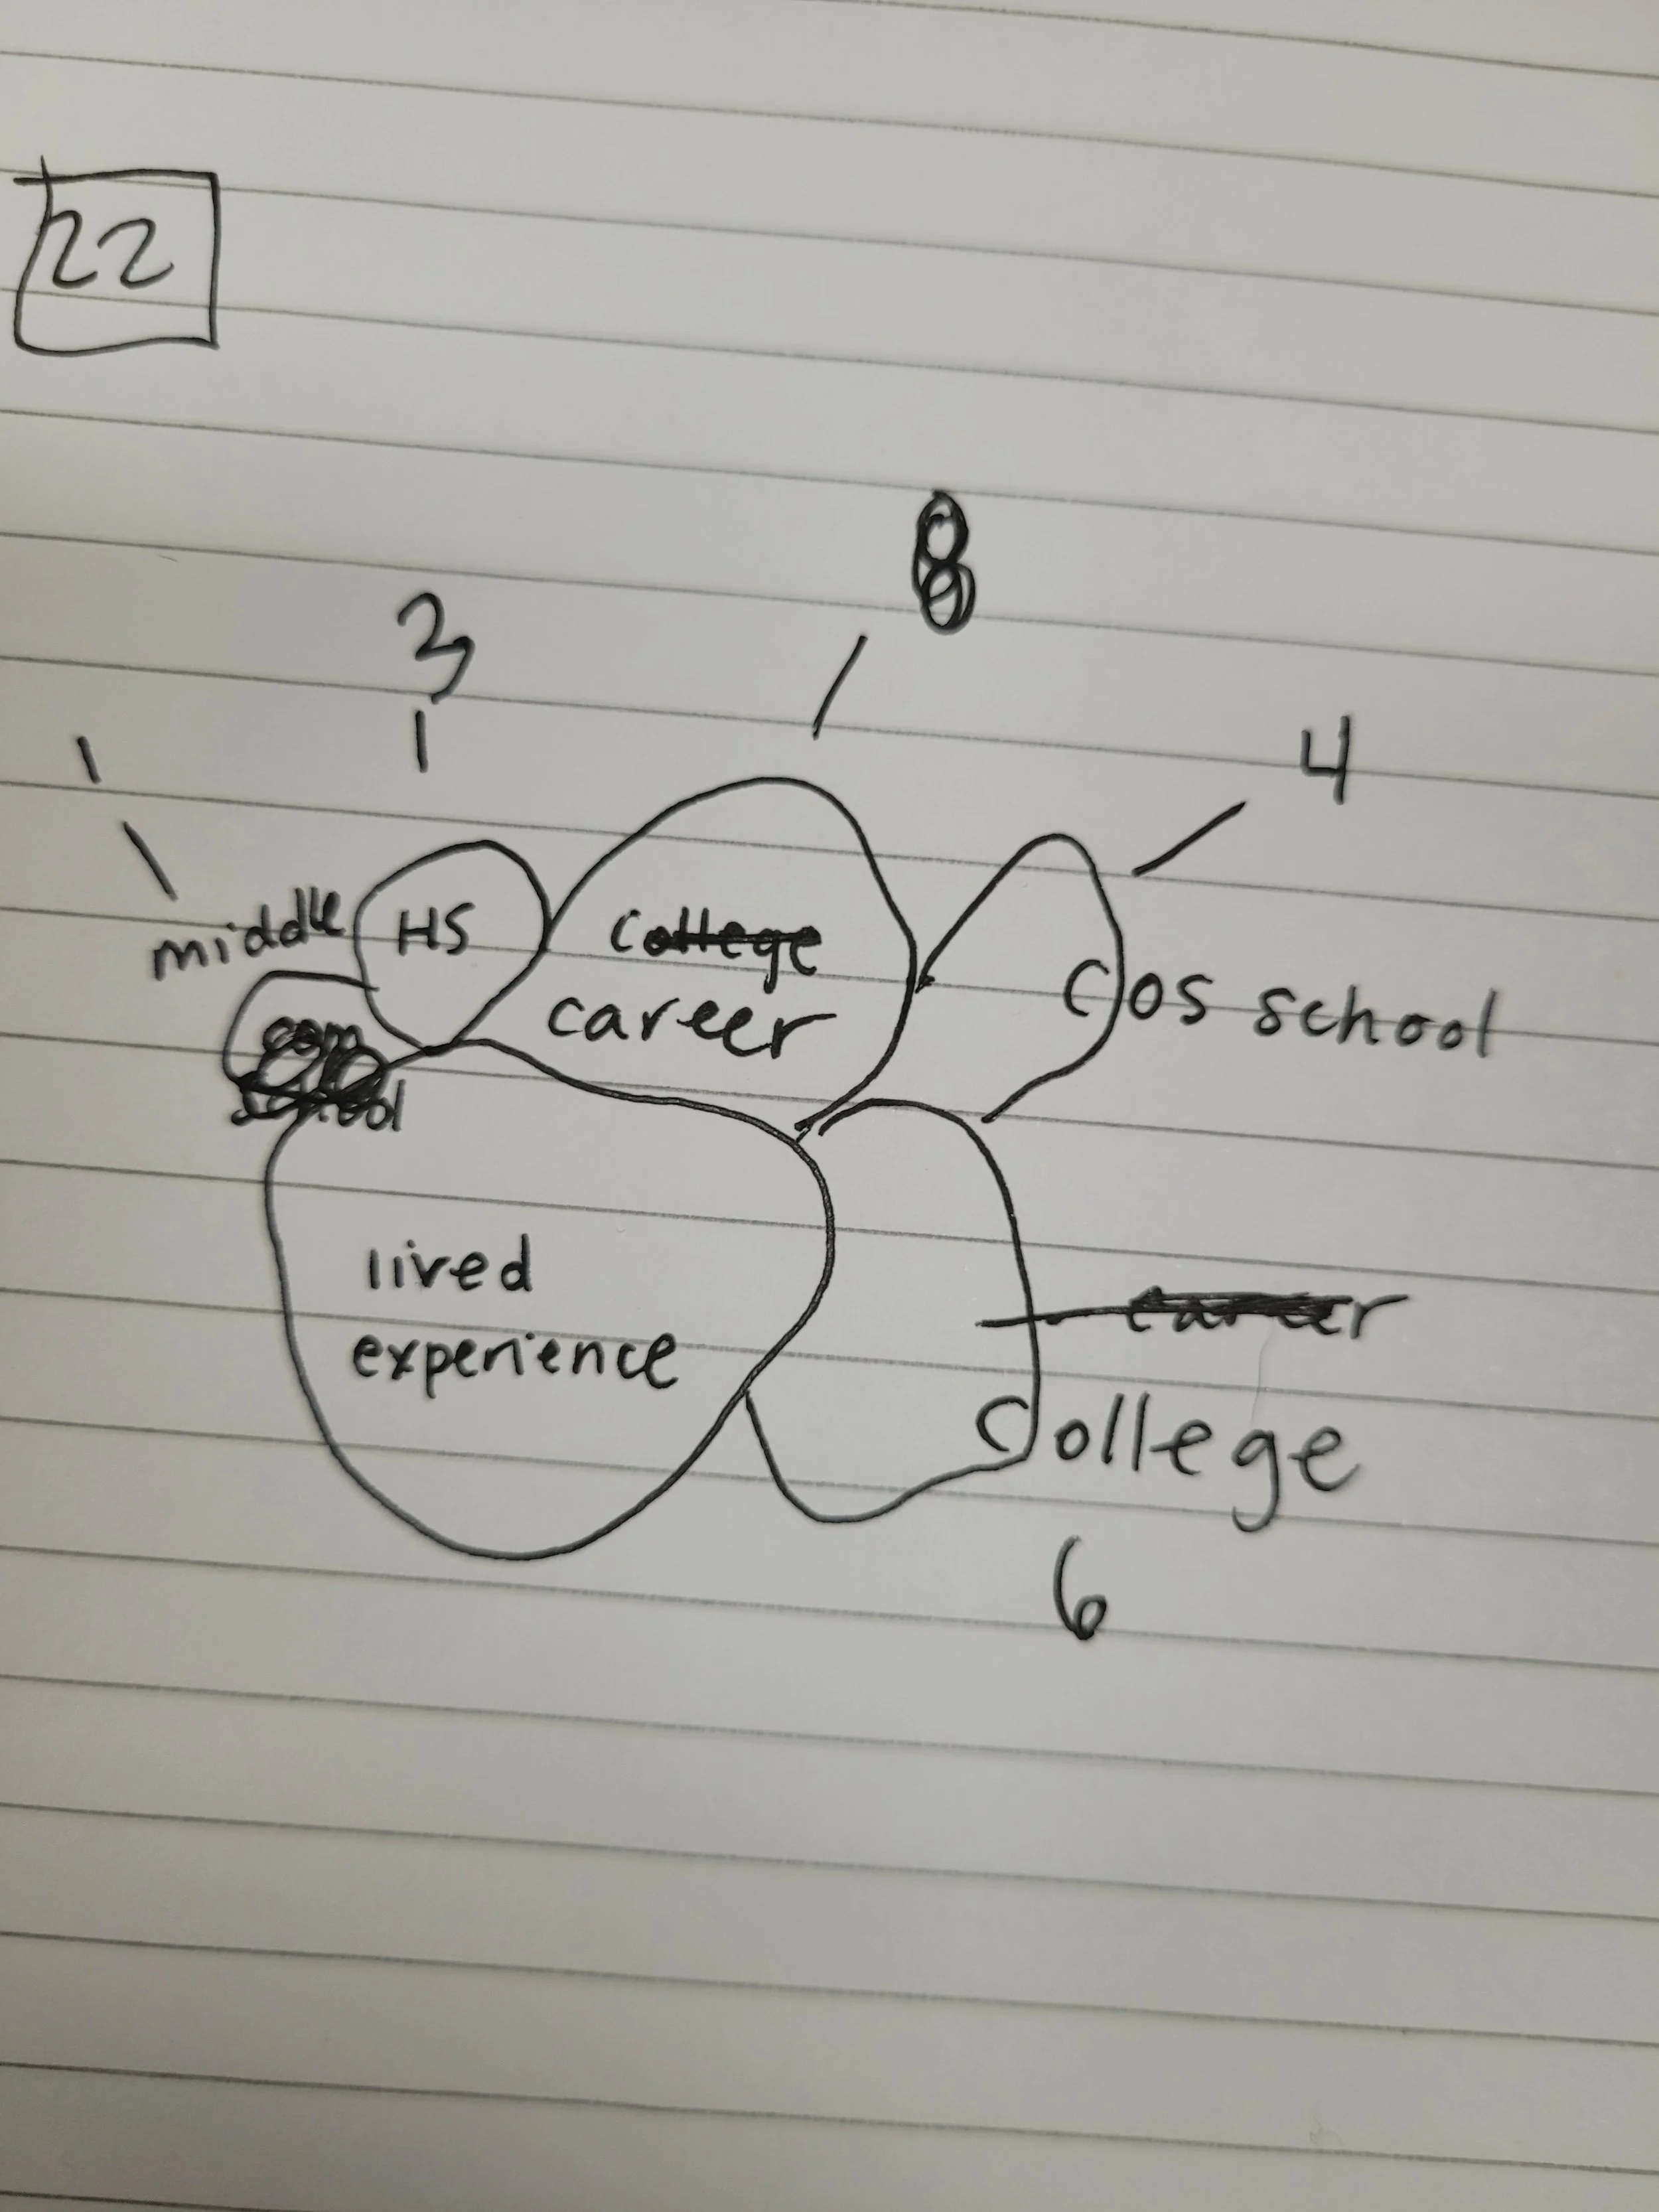 22
8
3
4
1
middle
HS
college
career
cos school
com
school
lived
experience
career
college
6